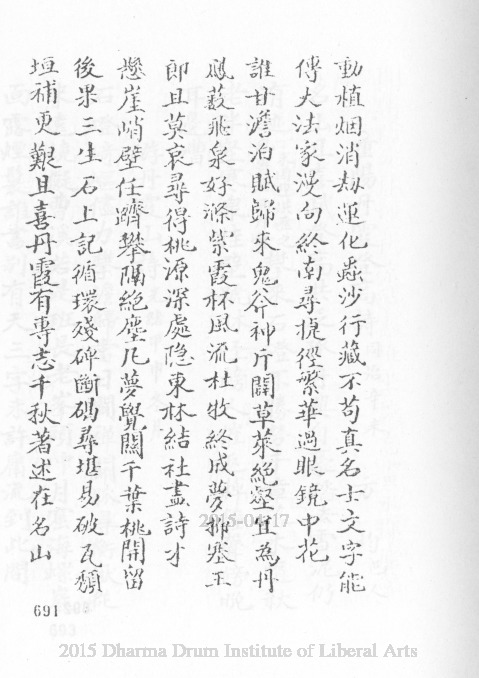 動植烟消劫運化蟲沙行藏不苟真名士文字能
傳大法家漫向終南尋捷徑繁華過眼鏡中花
誰甘澹泊賦歸來鬼斧神斤闢草萊絕壑宜為丹
鳳藪飛泉好滌紫霞杯風流杜牧終成夢抑塞王
郎且莫哀尋得桃源深處隐東林結社盡詩才
懸崖峭壁任躋攀隔絕塵凡夢覺關千葉桃開留
後果三生石上記循環殘碑斷碣尋堪易破瓦頽
垣補更艱且喜丹霞有專志千秋著述在名山
691
2015-04-17
2015 Dharma Drum Institute of Liberal Arts